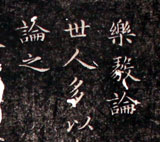 樂毅論
世人多以
論之